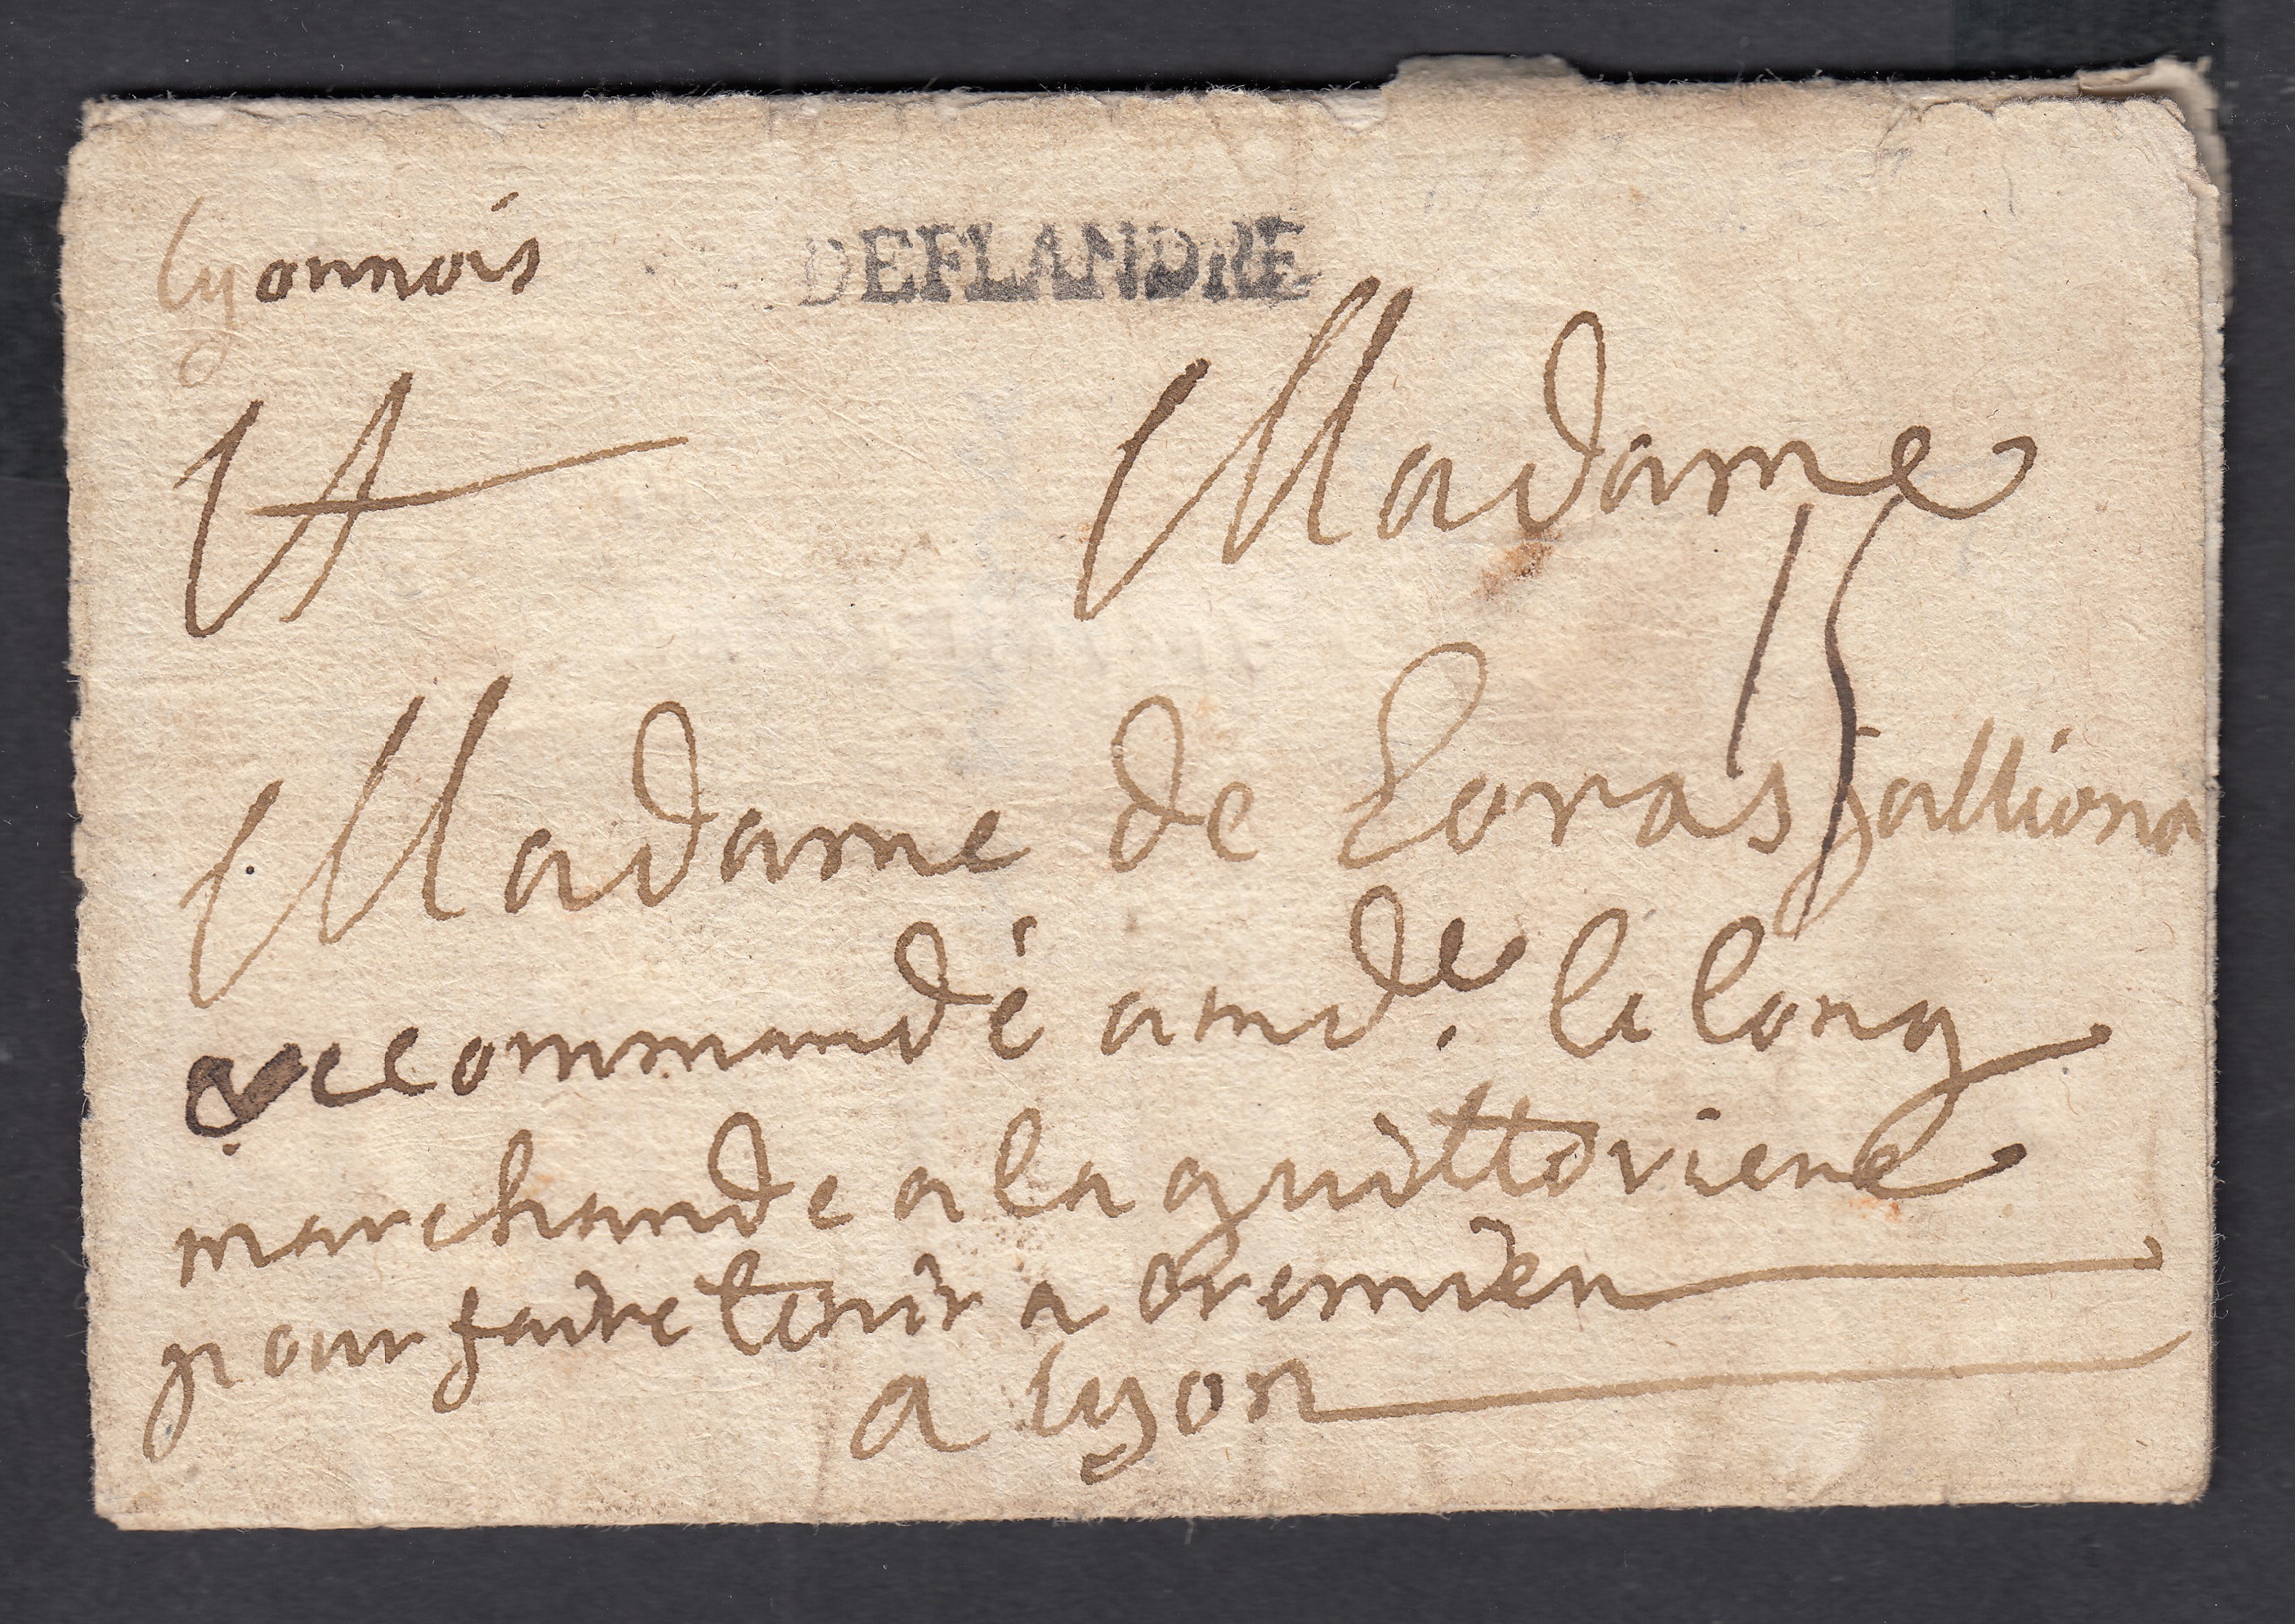 lyonnois
DEFLANDRE
A Madame
15
Madame de Loras Jalliona
reccommandé a md.e le long
marchande a la guillottiene
pour faire tenir a Cremieu
a lyon